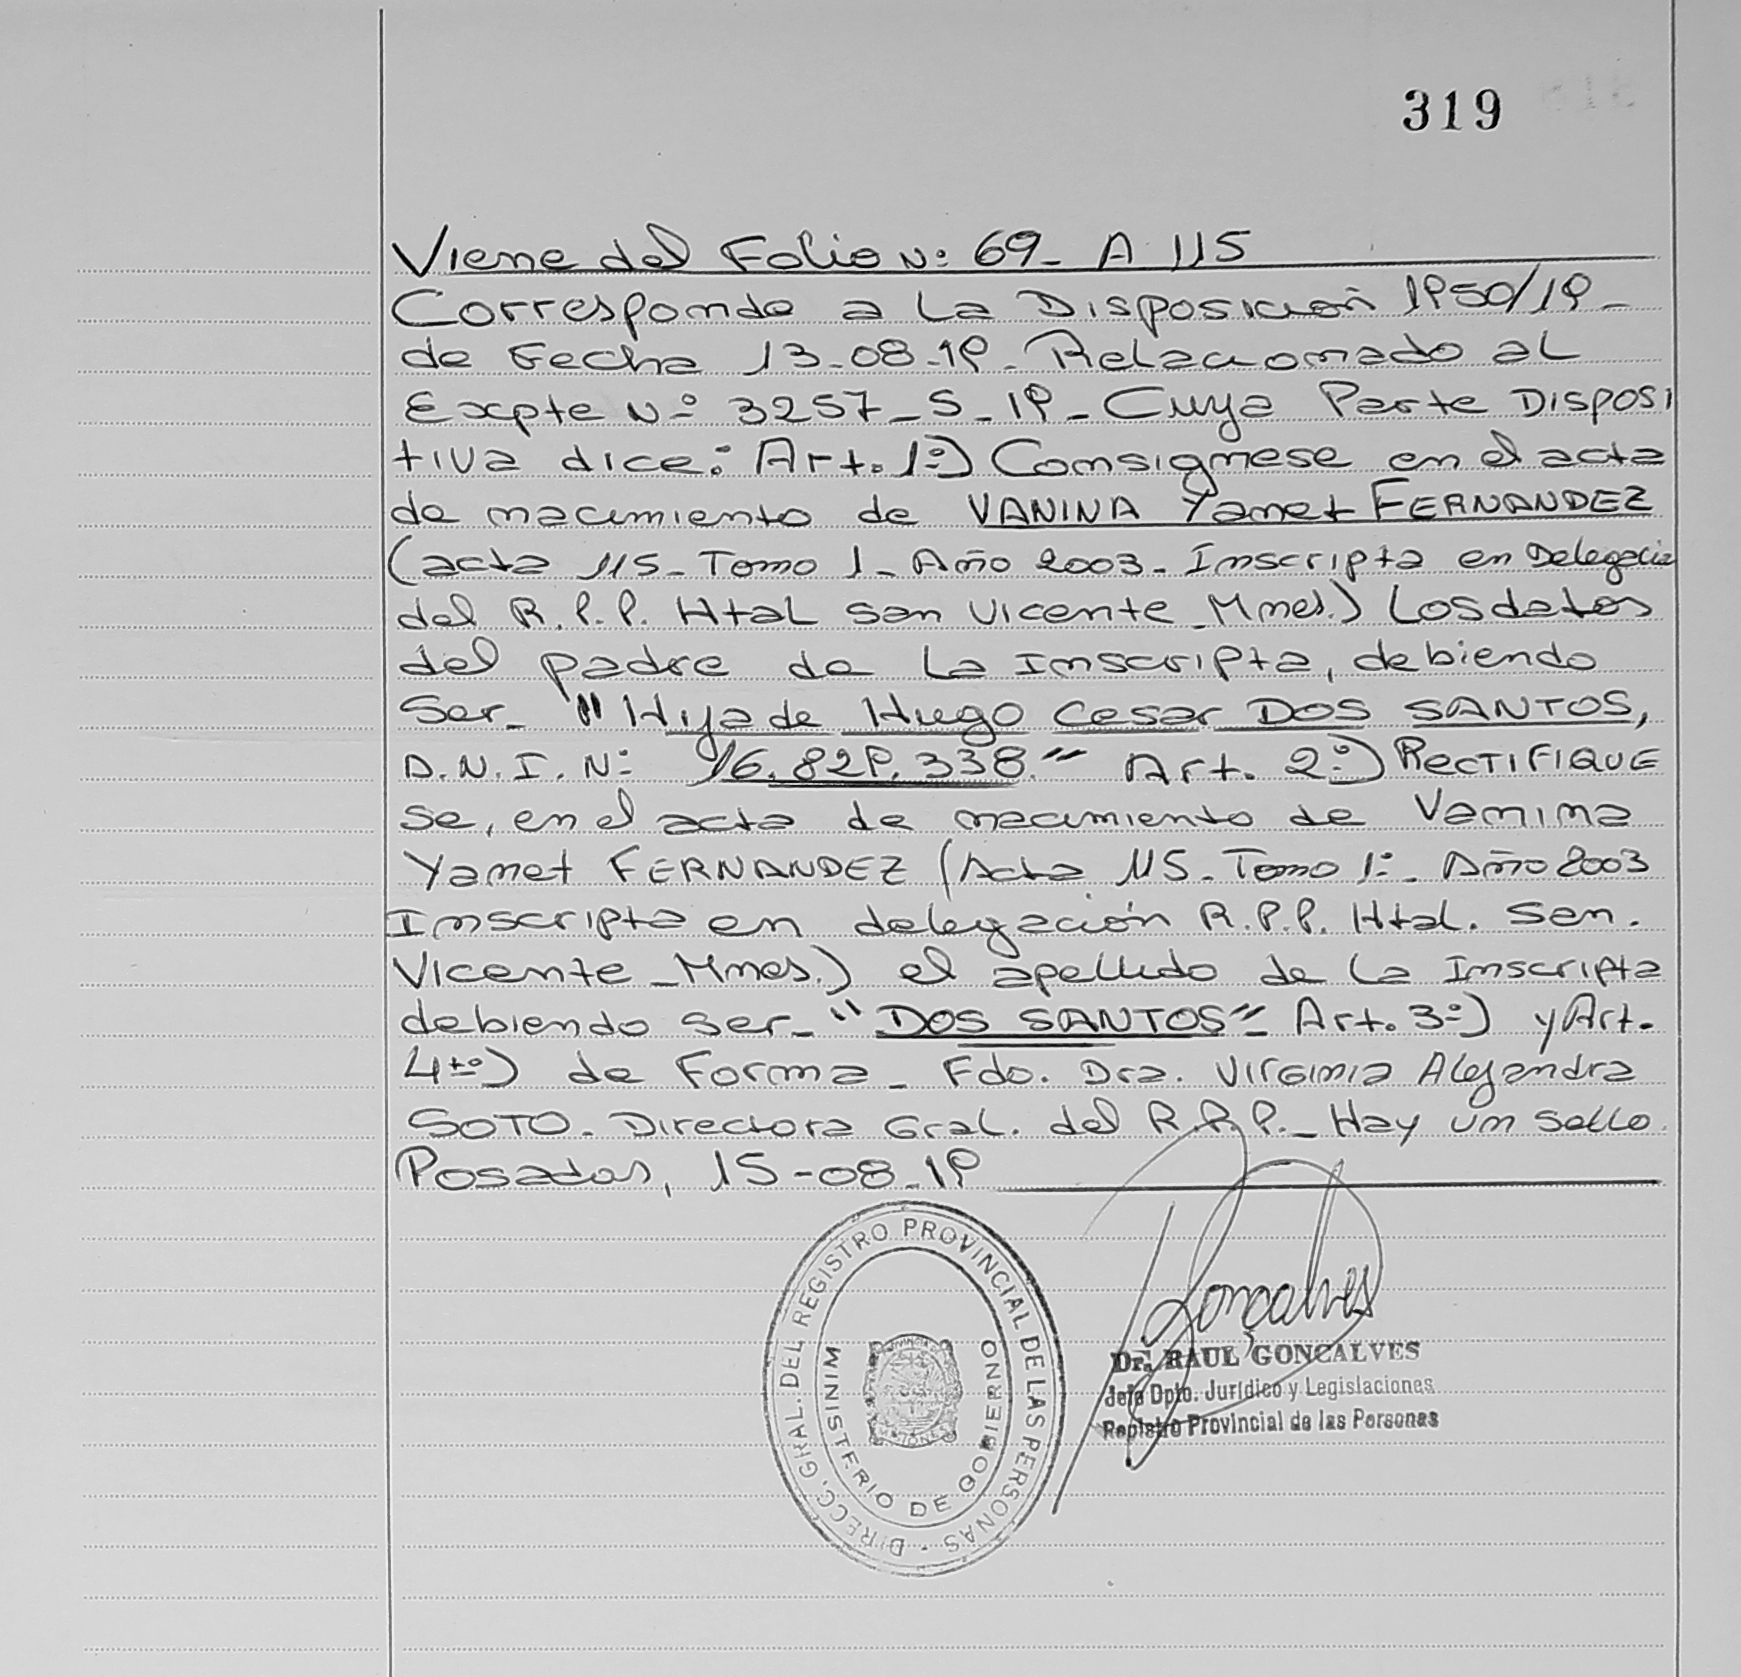 319
Viene del Folio Nº 69- A 115
Corresponde a La Disposición 1950/19-
de Fecha 13-08-19- Relacionado al
Expte Nº 3257-S-19- Cuya Parte Disposi
tiva dice: Art. 1º) Consignese en el acta
de nacimiento de VANINA Yanet FERNANDEZ
(acta 115- Tomo 1- Año 2003- Inscripta en Delegacia
del R.P.P. Htal San Vicente_Mnes.) Los datos
del padre de La Inscripta, debiendo
Ser- "Hija de Hugo Cesar DOS SANTOS,
D.N.I. Nº 16.829.338." Art. 2º) RECTIFIQUE
se, en el acta de nacimiento de Vanina
Yanet FERNANDEZ (Acta 115- Tomo 1º- Año 2003
Inscripta en delegación R.P.P. Htal. San.
Vicente_Mnes.) el apellido de La Inscripta
debiendo ser- "DOS SANTOS" Art. 3º) y Art.
4to) de Forma_ Fdo. Dra. Virginia Alejandra
SOTO- Directora Gral. del R.P.P._ Hay un Sello.
Posadas, 15-08-19
DIRECC. GRAL. DEL REGISTRO PROVINCIAL DE LAS PERSONAS -
MINISTERIO DE GOBIERNO
PROVINCIA DE
MISIONES
Gonçalves
Dr. RAUL GONCALVES
Jefe Dpto. Jurídico y Legislaciones
Registro Provincial de las Personas